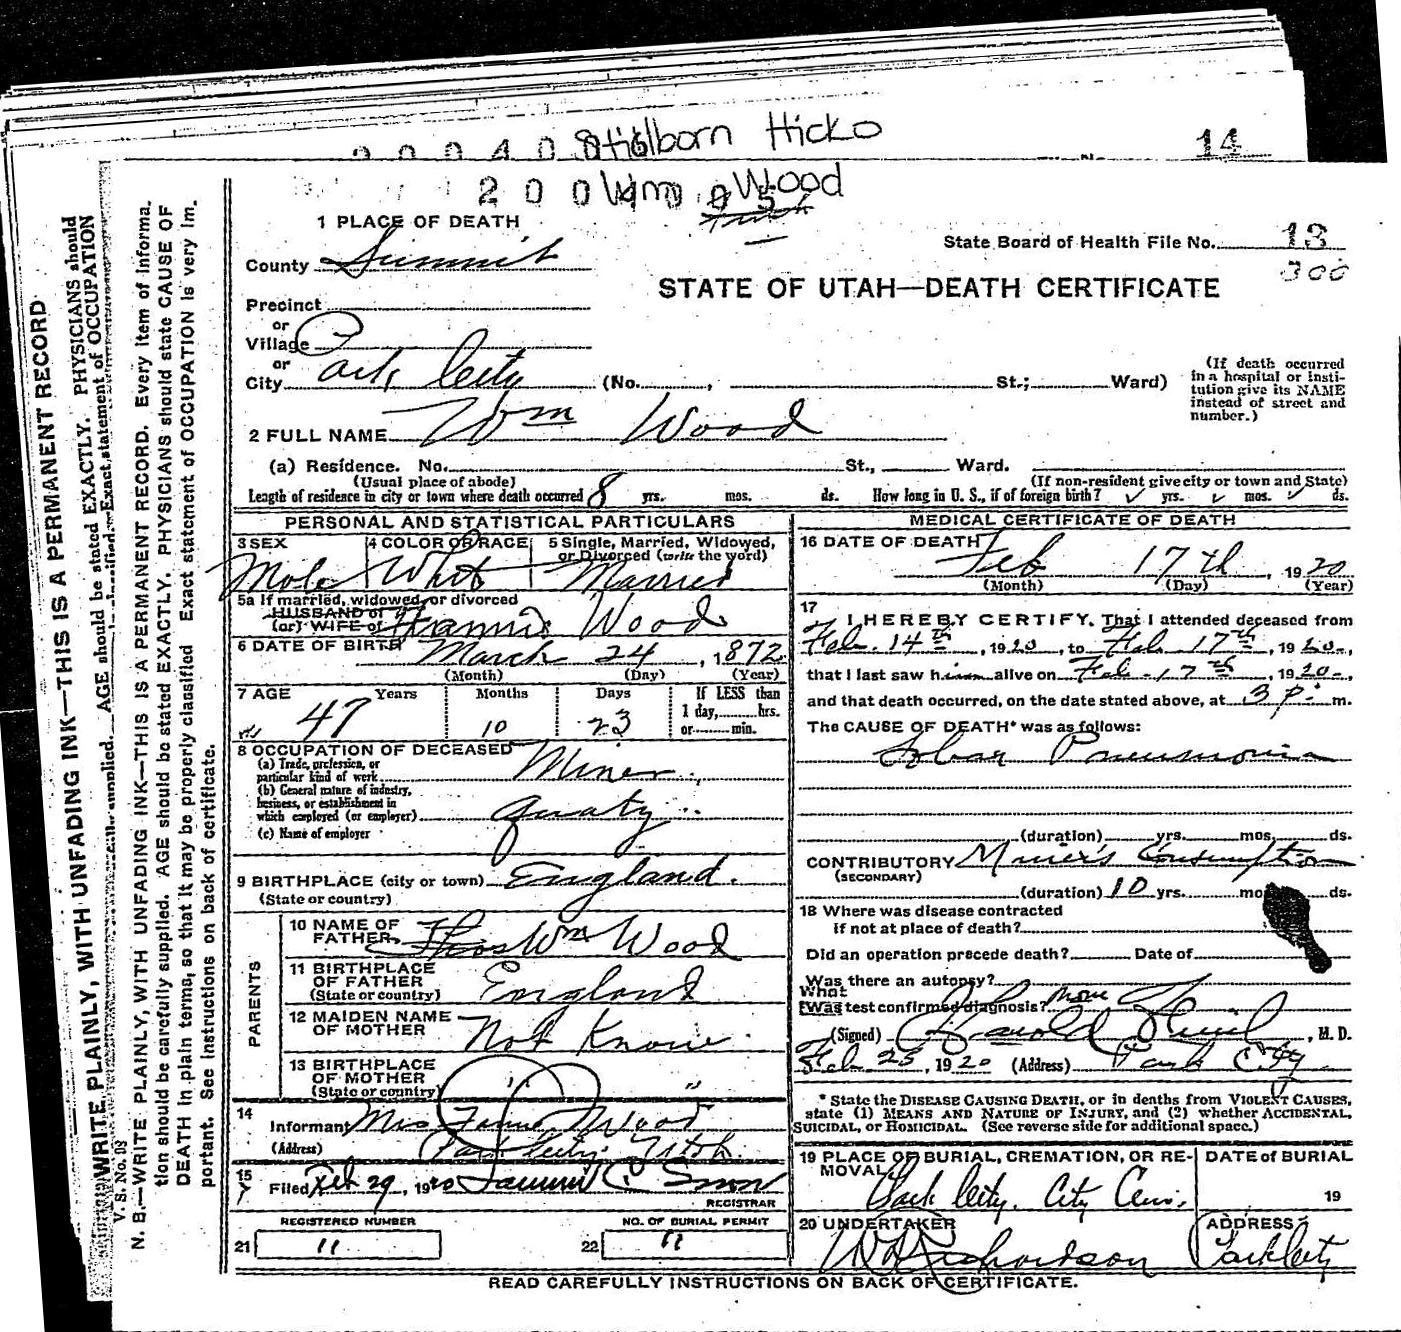 Stillborn Hicko
14
Wm Wood
1 PLACE OF DEATH
State Board of Health File No. 13
300
County Summit
STATE OF UTAH—DEATH CERTIFICATE
Precinct
or
Village
or
City Park City (No. , St.; Ward)
(If death occurred in a hospital or insti-
tution give its NAME
instead of street and
number.)
2 FULL NAME Wm Wood
(a) Residence. No. St., Ward.
(Usual place of abode) (If non-resident give city or town and State)
Length of residence in city or town where death occurred 8 yrs. mos. ds. How long in U. S., if of foreign birth? yrs. mos. ds.
PERSONAL AND STATISTICAL PARTICULARS
3 SEX 4 COLOR OR RACE 5 Single, Married, Widowed,
or Divorced (write the word)
Male Whit Married
5a If married, widowed, or divorced
HUSBAND of
(or) WIFE of Wood
6 DATE OF BIRTH March 24, 1872
(Month) (Day) (Year)
7 AGE Years Months Days If LESS than
1 day, hrs.
or min.
47 10 23
8 OCCUPATION OF DECEASED
(a) Trade, profession, or
particular kind of work Miner
(b) General nature of industry,
business, or establishment in
which employed (or employer)
(c) Name of employer
9 BIRTHPLACE (city or town) England.
(State or country)
PARENTS
10 NAME OF
FATHER Thos Wm Wood
11 BIRTHPLACE
OF FATHER
(State or country) England
12 MAIDEN NAME
OF MOTHER Not Know
13 BIRTHPLACE
OF MOTHER
(State or country) " "
14
Informant Mrs Wood
(Address) Park City, Utah.
15
Filed Feb 29, 1920
REGISTRAR
REGISTERED NUMBER NO. OF BURIAL PERMIT
21 11 22 11
MEDICAL CERTIFICATE OF DEATH
16 DATE OF DEATH
Feb 17th, 1920
(Month) (Day) (Year)
17
I HEREBY CERTIFY, That I attended deceased from
Feb. 14th, 1920, to Feb. 17th, 1920,
that I last saw him alive on Feb. 17th, 1920,
and that death occurred, on the date stated above, at 3 p. m.
The CAUSE OF DEATH* was as follows:
Lobar Pneumonia
(duration) yrs. mos. ds.
CONTRIBUTORY Miner's Consumption
(SECONDARY)
(duration) 10 yrs. mos. ds.
18 Where was disease contracted
if not at place of death?
Did an operation precede death? Date of
Was there an autopsy?
What
Was test confirmed diagnosis? none
(Signed) Harold, M. D.
Feb. 25, 1920 (Address) Park City
* State the DISEASE CAUSING DEATH, or in deaths from VIOLENT CAUSES,
state (1) MEANS AND NATURE OF INJURY, and (2) whether ACCIDENTAL,
SUICIDAL, or HOMICIDAL. (See reverse side for additional space.)
19 PLACE OF BURIAL, CREMATION, OR RE-
MOVAL
DATE of BURIAL
Park City. City Cem. 19
20 UNDERTAKER ADDRESS
W Richardson Park City
READ CAREFULLY INSTRUCTIONS ON BACK OF CERTIFICATE.
WRITE PLAINLY, WITH UNFADING INK—THIS IS A PERMANENT RECORD
AGE should be stated EXACTLY. PHYSICIANS should
Exact statement of OCCUPATION
V. S. No. 95
N. B.—WRITE PLAINLY, WITH UNFADING INK—THIS IS A PERMANENT RECORD. Every item of informa-
tion should be carefully supplied. AGE should be stated EXACTLY. PHYSICIANS should state CAUSE OF
DEATH in plain terms, so that it may be properly classified Exact statement of OCCUPATION is very im-
portant. See instructions on back of certificate.